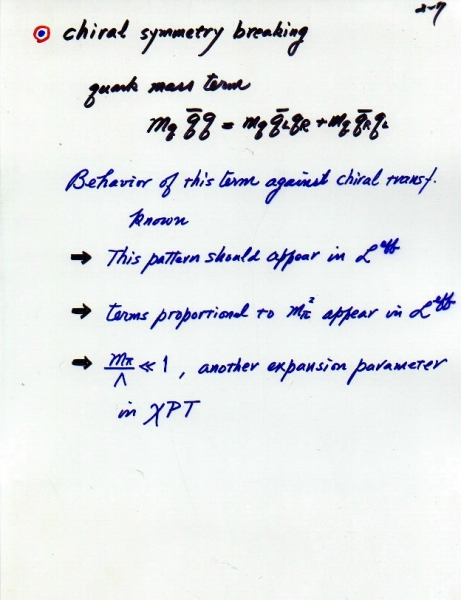 2-7
chiral symmetry breaking
quark mass term
m_q q̄q = m_q q̄_L q_R + m_q q̄_R q_L
Behavior of this term against chiral transf.
known
→ This pattern should appear in ℒ^eff
→ terms proportional to m_π^2 appear in ℒ^eff
→ m_π/Λ ≪ 1, another expansion parameter
in χPT